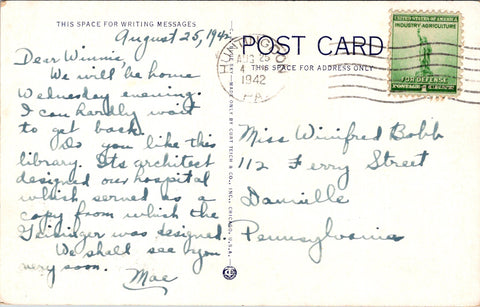 THIS SPACE FOR WRITING MESSAGES
August 25, 1942
Dear Winnie,
We will be home
Wednesday evening.
I can hardly wait
to get back.
Do you like this
library. Its architect
designed our hospital
which served as a
copy from which the
Geisinger was designed.
We shall see you
very soon.
Mae
POST CARD
THIS SPACE FOR ADDRESS ONLY
AUG 25
4
1942
PA.
UNITED STATES OF AMERICA
INDUSTRY AGRICULTURE
FOR DEFENSE
POSTAGE 1 CENT
Miss Winifred Bobb
112 Ferry Street
Danville
Pennsylvania